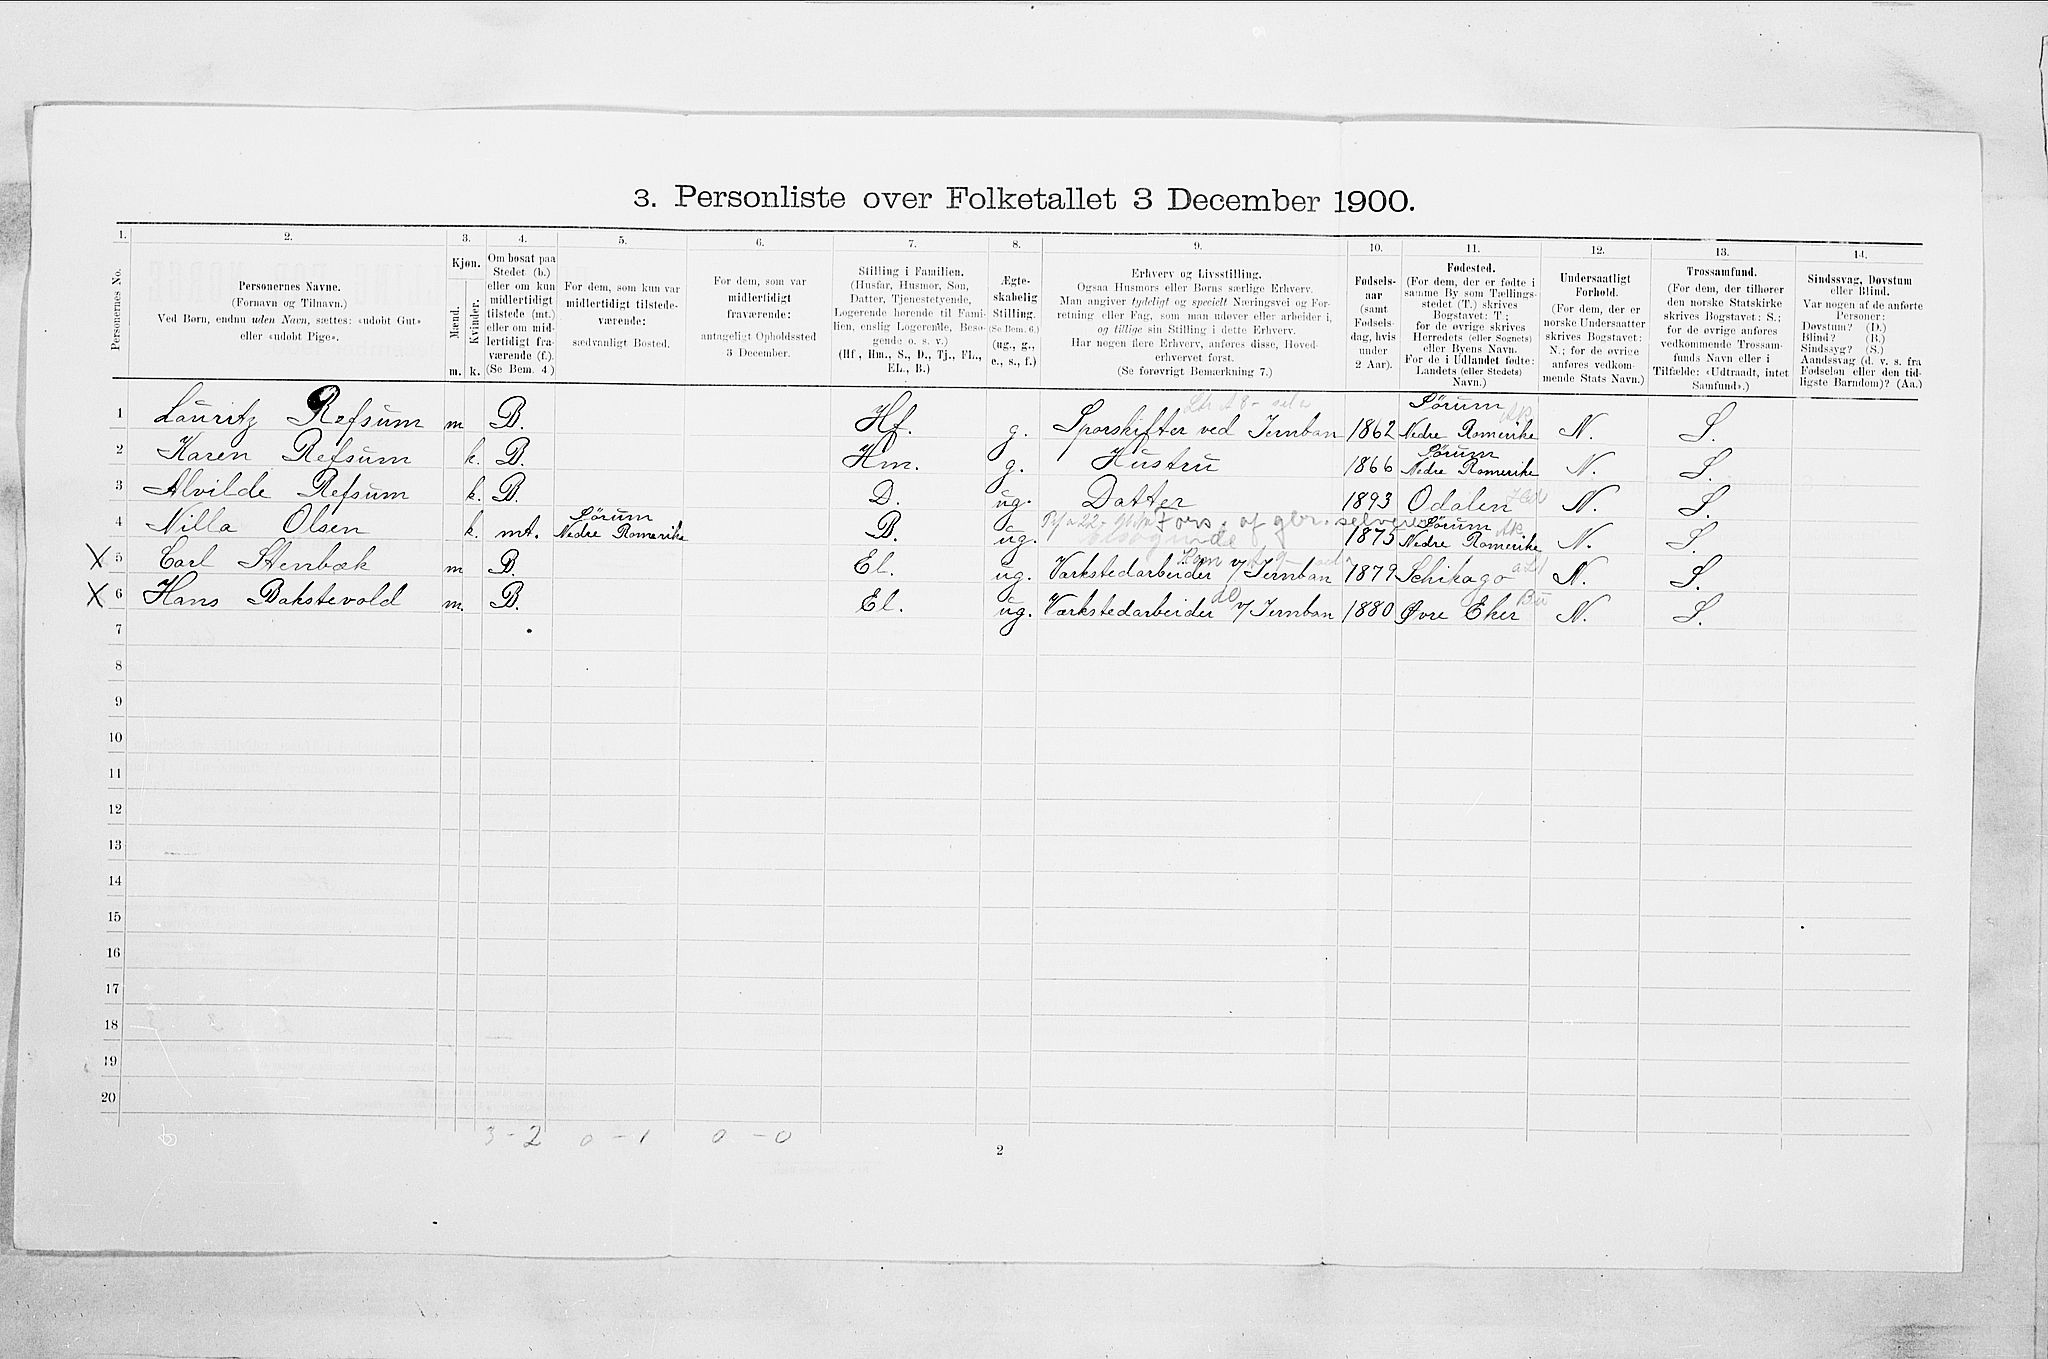 3. Personliste over Folketallet 3 December 1900.
1. 2. 3. 4. 5. 6. 7. 8. 9. 10. 11. 12. 13. 14.
Personernes No.
Personernes Navne.
(Fornavn og Tilnavn.)
Ved Børn, endnu uden Navn, sættes: «udøbt Gut»
eller «udøbt Pige».
Kjøn.
Mænd.
Kvinder.
m. k.
Om bosat paa
Stedet (b.)
eller om kun
midlertidigt
tilstede (mt.)
eller om mid-
lertidigt fra-
værende (f.).
(Se Bem. 4.)
For dem, som kun var
midlertidigt tilstede-
værende:
sædvanligt Bosted.
For dem, som var
midlertidigt
fraværende:
antageligt Opholdssted
3 December.
Stilling i Familien.
(Husfar, Husmor, Søn,
Datter, Tjenestetyende,
Logerende hørende til Fami-
lien, enslig Logerende, Besø-
gende o. s. v.)
(Hf., Hm., S., D., Tj., FL.,
EL., B.)
Ægte-
skabelig
Stilling.
(Se Bem. 6.)
(ug., g.,
e., s., f.)
Erhverv og Livsstilling.
Ogsaa Husmors eller Børns særlige Erhverv.
Man angiver tydeligt og specielt Næringsvei og For-
retning eller Fag, som man udøver eller arbeider i,
og tillige sin Stilling i dette Erhverv.
Har nogen flere Erhverv, anføres disse, Hoved-
erhvervet først.
(Se forøvrigt Bemærkning 7.)
Fødsels-
aar
(samt
Fødsels-
dag, hvis
under
2 Aar).
Fødested.
(For dem, der er fødte i
samme By som Tællings-
stedet (T.) skrives
Bogstavet: T.;
for de øvrige skrives
Herredets (eller Sognets)
eller Byens Navn.
For de i Udlandet fødte:
Landets (eller Stedets)
Navn.)
Undersaatligt
Forhold.
(For dem, der er
norske Undersaatter
skrives Bogstavet:
N.; for de øvrige
anføres vedkom-
mende Stats Navn.)
Trossamfund.
(For dem, der tilhører
den norske Statskirke
skrives Bogstavet: S.;
for de øvrige anføres
vedkommende Trossam-
funds Navn eller i
Tilfælde: «Udtraadt, intet
Samfund».)
Sindssvag, Døvstum
eller Blind.
Var nogen af de anførte
Personer:
Døvstum? (D.)
Blind? (B.)
Sindssyg? (S.)
Aandssvag (d. v. s. fra
Fødselen eller den tid-
ligste Barndom)? (Aa.)
1 Lauritz Refsum m B. Hf. g. Sporskifter ved Jernban 1862 Sørum Nedre Romerike Ak N. S.
2 Karen Refsum k. B. Hm. g. Hustru 1866 Sørum Nedre Romerike N. S.
3 Alvilde Refsum k. B. D. ug. Datter 1893 Odalen N. S.
4 Nilla Olsen k. mt. Sørum Nedre Romerike B. ug. Fors. af gbr. selveier 1875 Sørum Nedre Romerike Ak N. S.
X 5 Carl Stenbæk m B. El. ug. Værkstedarbeider v/ Jernban 1879 Schikago N. S.
X 6 Hans Bakstevold m. B. El. ug. Værkstedarbeider do v/ Jernban 1880 Øvre Eker Bu N. S.
7
8
9
10
11
12
13
14
15
16
17
18
19
20
6 3-2 0-1 0-0
2